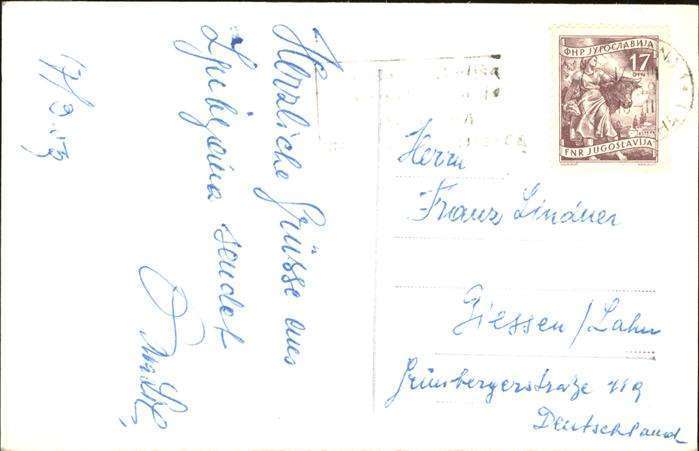 17/9.53
Herzliche Grüsse aus
Ljubijana sendet
Herrn
Franz Lindner
Giessen/Lahn
Grünbergerstraze 119
Deutschland
ФНР ЈУГОСЛАВИЈА
17
ДИН
FNR JUGOSLAVIJA